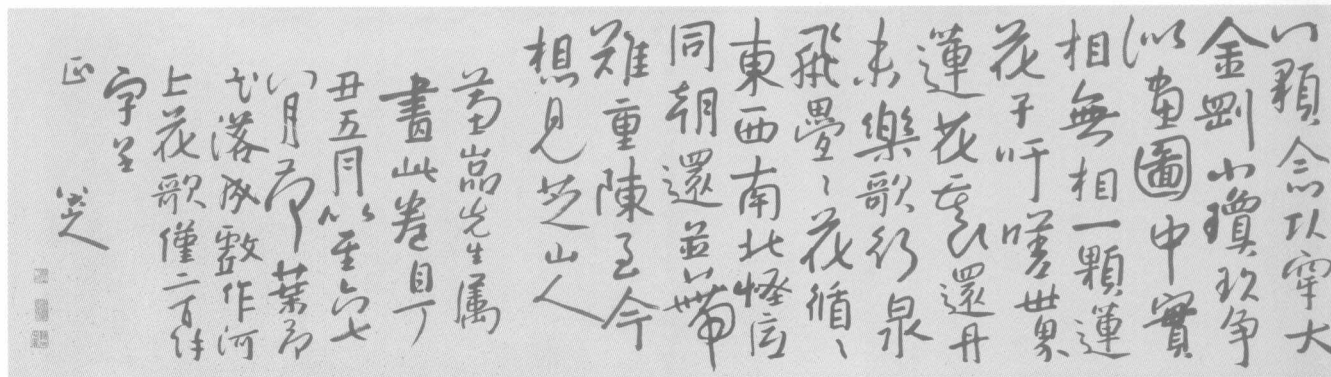 八顆念頭穿大
金剛小瓊玖爭
似畫圖中實
相無相一顆蓮
花子吁嗟世界
蓮花裏還丹
未樂歌行泉
飛疊〻花循〻
東西南北怪底
同朝還並蒂
難重陳至今
想見芝山人
蕙嵒先生屬
畫此卷自丁
丑五月以至六七
八月荷葉荷
花落成戲作河
上花歌僅二百餘
字呈
正
八大山人